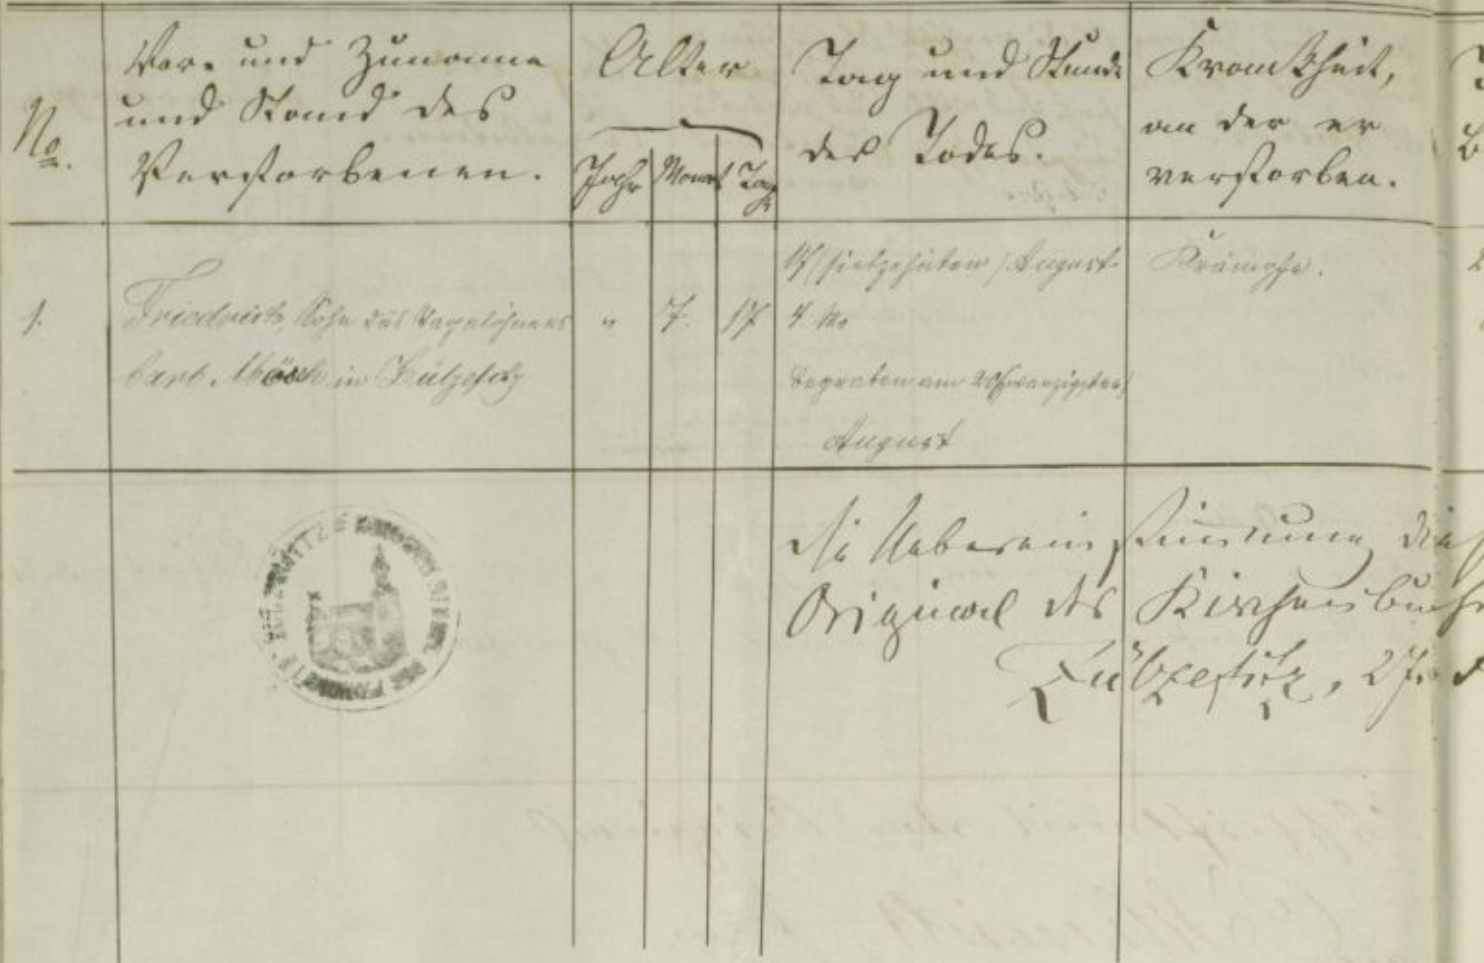 No.
Vor- und Zuname
und Stand des
Verstorbenen.
Alter
Jahr Monat Tag
Tag und Stunde
des Todes.
Krankheit,
an der er
verstorben.
1.
Friedrich, Sohn des Tagelöhners
Carl Mösch in Zülzefitz
" 7. 17
17 (siebzehnten) August
4 Mo
begraben am 20 (zwanzigsten)
August
Krämpfe.
die Uebereinstimmung
Original des Kirchenbuchs
Zülzefitz, 27.